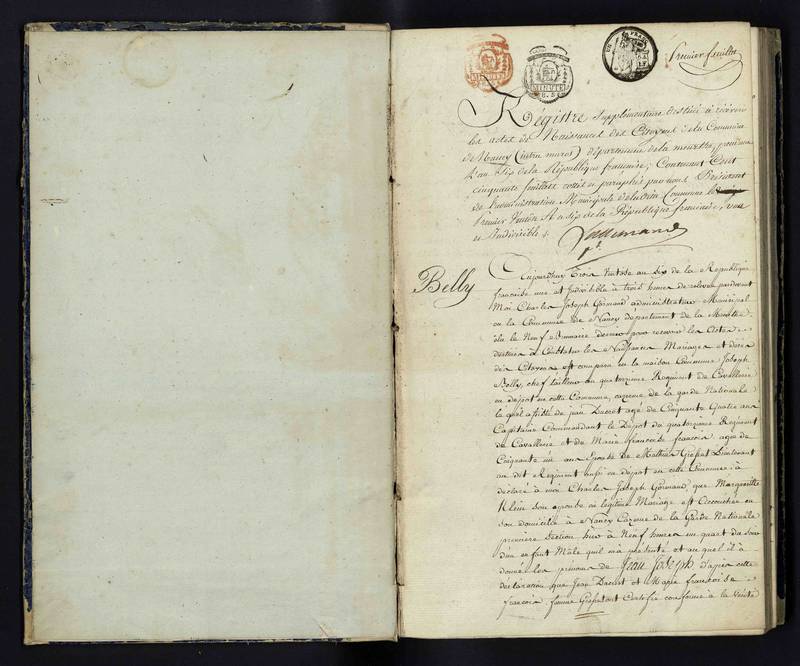 MINUTE
MINUTE
8. 5
UN FRANC
Premier feuillet
Régistre Supplémentaire destiné à récévoir
les actes de Naissances des Citoyens de la Commune
de Nancy (intra muros) département de la meurthe, pendant
l'an Six de la République française; Contenant Cent
cinquante feuillets cottés et paraphés par nous Président
de l'administration Municipale de ladite Commune le
Premier Vendém. an six de la République française, une
et Indivisible.
Belly
Aujourd'huy Trois Vendse an six de la République
française une et Indivisible à trois heures de relevée pardevant
Moi Charles Joseph Gormand administrateur Municipal
de la Commune de Nancy département de la Meurthe
élu le Neuf Brumaire dernier pour recevoir les Actes
destinés à Constater les Naissances Mariages et décès
des Citoyens est comparu en la maison Commune Joseph
Belly, chef tailleur au quatorzieme Regiment de Cavallerie
en dépôt en cette Commune, cazerne de la garde Nationale
lequel assisté de jean Ducret agé de Cinquante Quatre ans
Capitaine Commandant le Dépôt du quatorzieme Regiment
de Cavallerie et de Marie françoise françois agée de
Cinquante un ans Epouse de Mathieu Lieutenant
au dit Regiment aussi en dépôt en cette Commune à
déclaré à moi Charles Joseph Gormand, que Marguerite
Klein son épouse en légitime Mariage est Accouchée en
son domicille à Nancy Cazerne de la Garde Nationale
première section hier à Neuf heures un quart du soir
d'un enfant Mâle quil m'a présenté et auquel il à
donné les prénoms de Jean Joseph d'après cette
déclaration que Jean Ducret et Marie françoise
françois femme Certifié conforme à la vérité